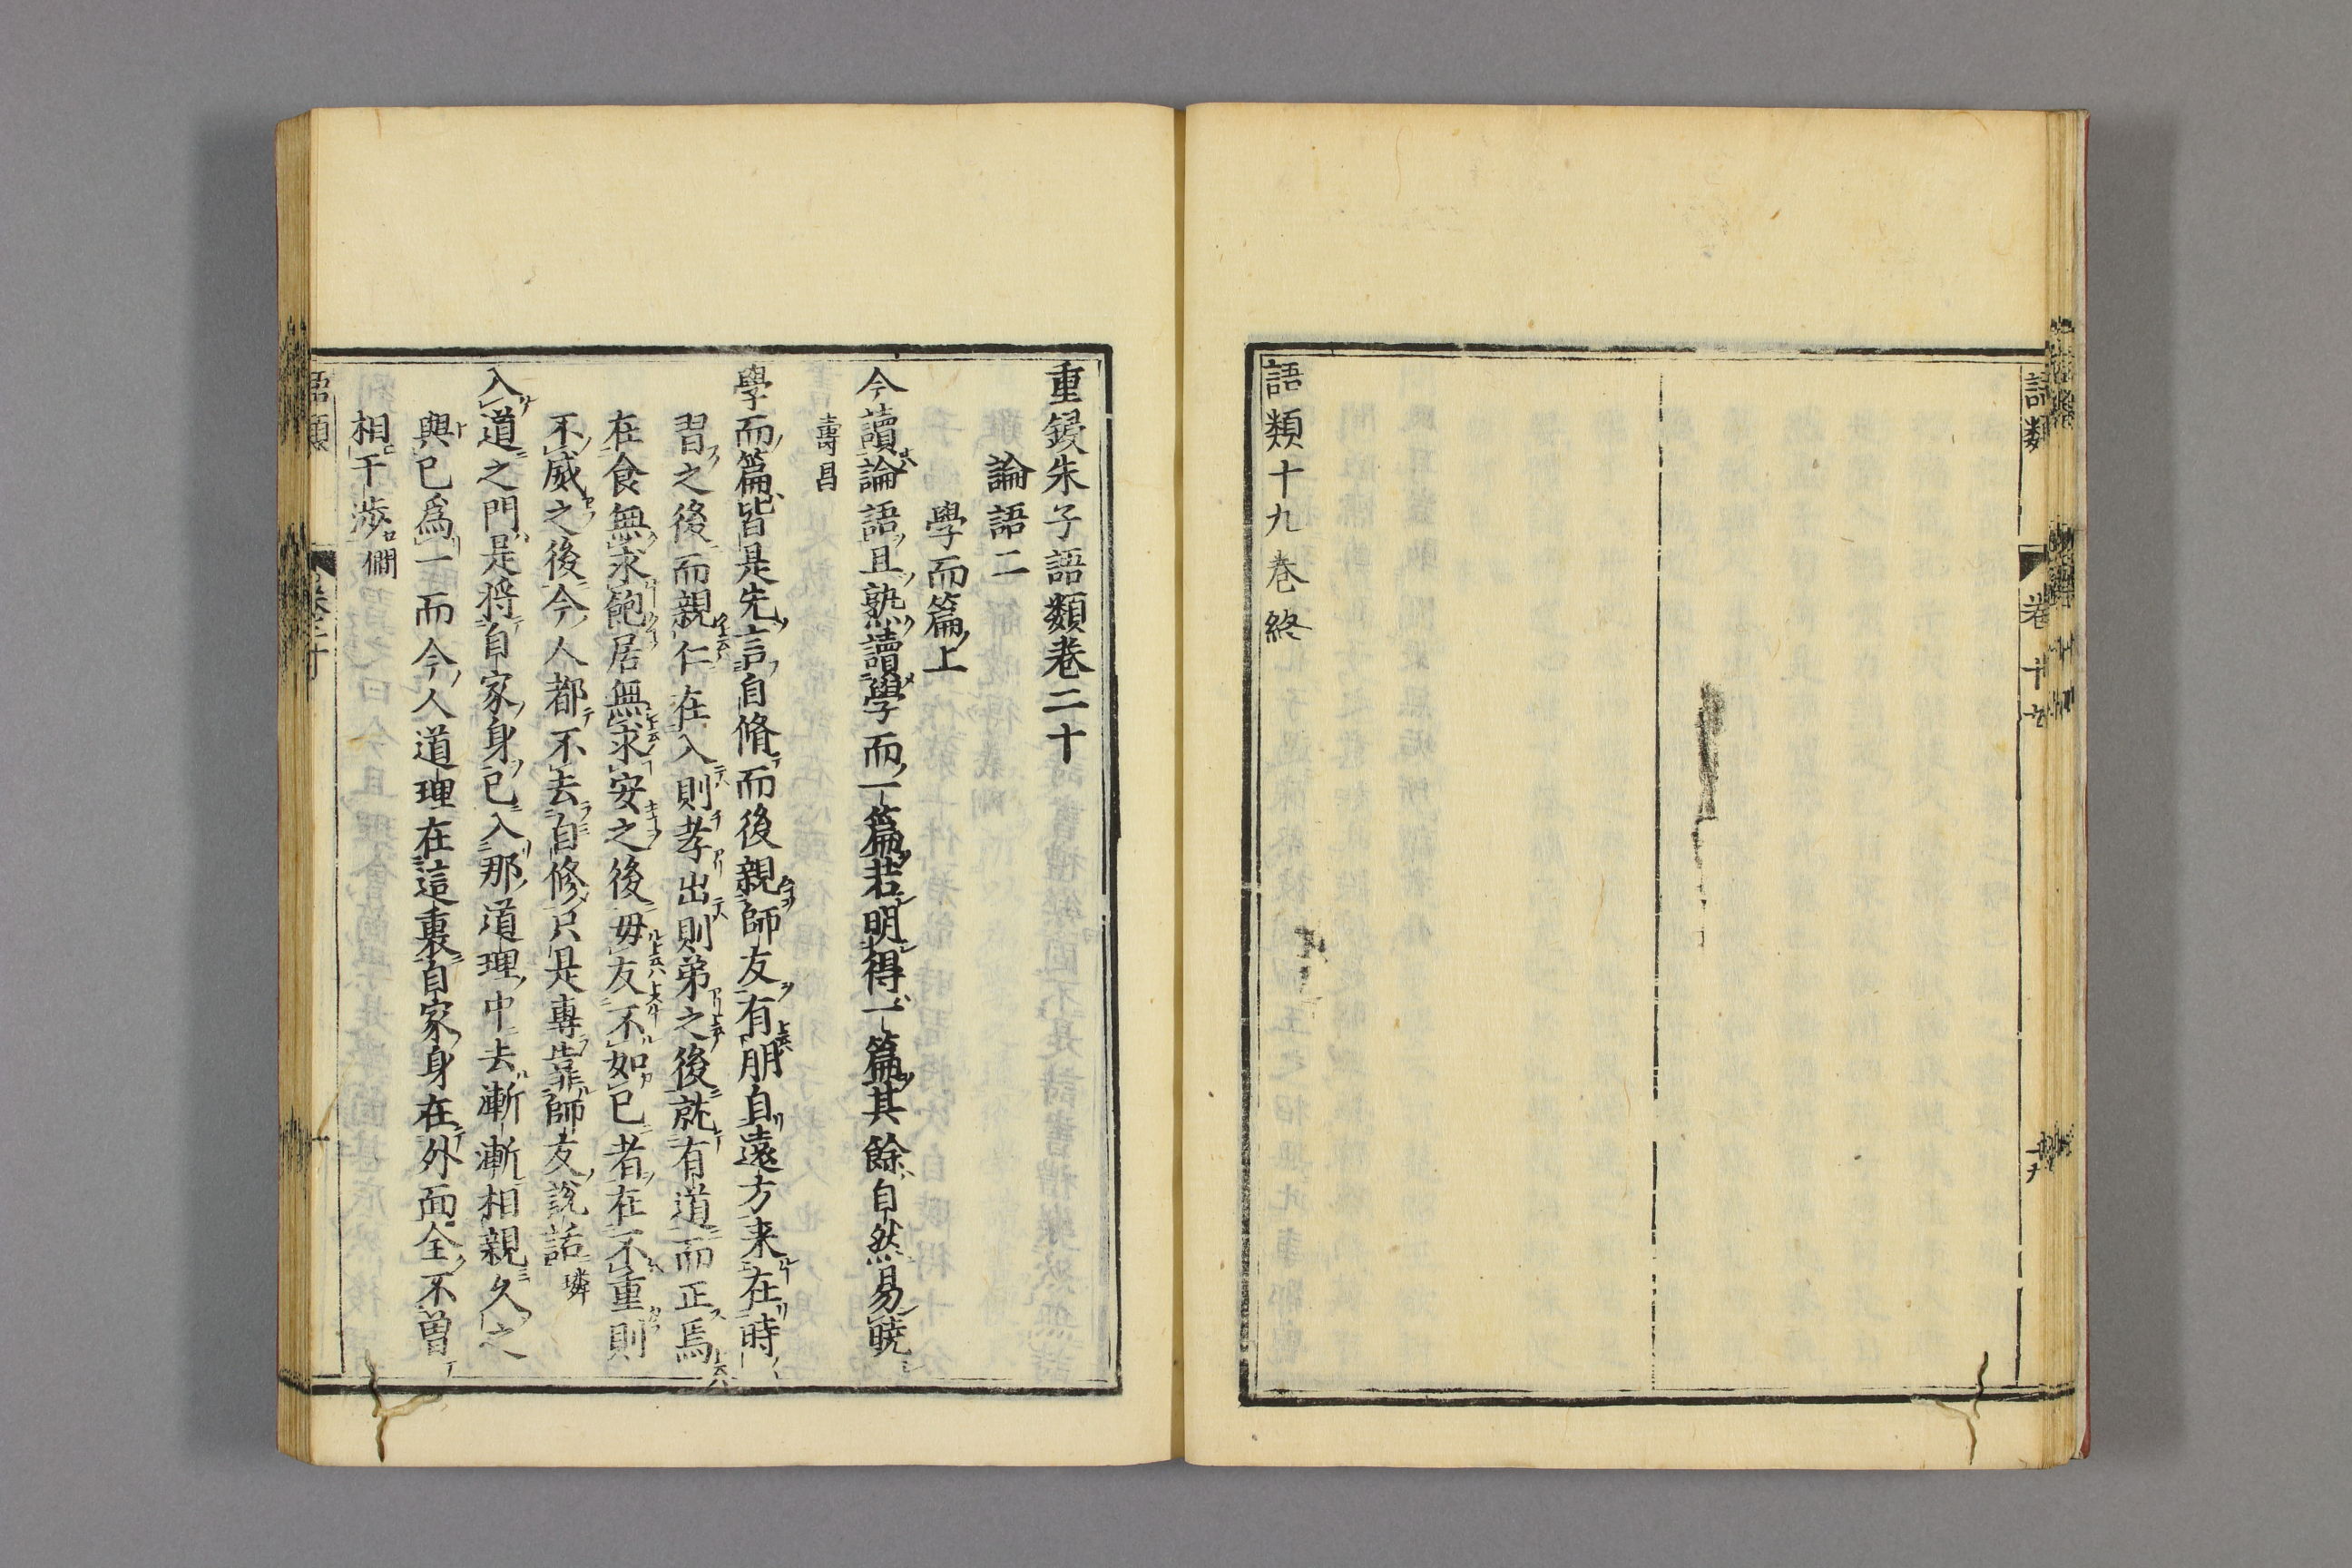 語類
卷十九
語類十九卷終
重鋟朱子語類卷二十
論語二
學而篇上
今讀論語且熟讀學而一篇若明得一篇其餘自然易曉
壽昌
學而篇皆是先言自脩而後親師友有朋自遠方来在時
習之後而親仁在入則孝出則弟之後就有道而正焉
在食無求飽居無求安之後毋友不如己者在不重則
不威之後今人都不去自修只是專靠師友說話璘
入道之門是将自家身己入那道理中去漸漸相親久之
與己爲一而今人道理在這裏自家身在外面全不曽
相干涉僩
語類
卷二十
一